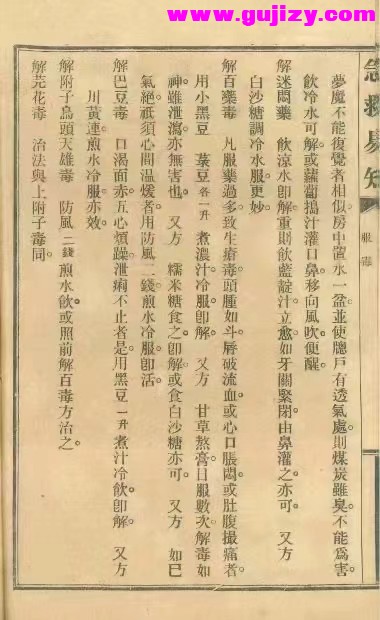 www.gujizy.com
急救易知
服毒
夢魔不能復覺者相似房中置水一盆並使牕戶有透氣處則煤炭雖臭不能爲害。
飲冷水可解或蘿蔔搗汁灌口鼻。移向風吹便醒。
解迷悶藥 飲涼水卽解重則飲藍靛汁立愈如牙關緊閉由鼻灌之亦可。 又方
白沙糖調冷水服更妙
解百藥毒 凡服藥過多致生瘡毒頭腫如斗唇破流血或心口脹悶或肚腹撮痛者。
用小黑豆 菉豆各一升 煮濃汁冷服卽解。 又方 甘草熬膏日服數次解毒如
神。雖泄瀉亦無害也。 又方 糯米糖食之卽解或食白沙糖亦可。 又方 如已
氣絕祇須心間温煖者用防風一錢煎水冷服卽活。
解巴豆毒 口渴面赤五心煩躁泄痢不止者是。用黑豆一升煮汁冷飲卽解。 又方
川黃連煎水冷服亦效。
解附子烏頭天雄毒 防風二錢煎水飲。或照前解百毒方治之。
解芫花毒 治法與上附子毒同。